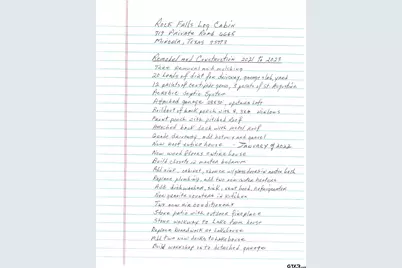 Rock Falls Log Cabin
719 Private Road 6665
Mineola, Texas 75773
Remodel and Construction 2021 to 2024
Tree removal and mulching
20 loads of dirt for driveway, garage slab, yard
Aerobic Septic System
Attached garage upstairs loft
back porch with windows
Front porch with pitched roof
Attached back deck with metal roof
driveway, add culvert and gravel
New roof entire house - January 2022
New wood floors entire house
Built closets in master bedroom
Add sink, cabinet, shower in master bath
Replace plumbing, add two new water heaters
Add dishwasher, sink, vent hood, refrigerator
New granite counters in kitchen
Two new air conditioners
Stone patio with outdoor fireplace
Stone walkway to Lake from house
Replace boardwalk at lakehouse
Add two new decks to lakehouse
Build workshop onto detached garage